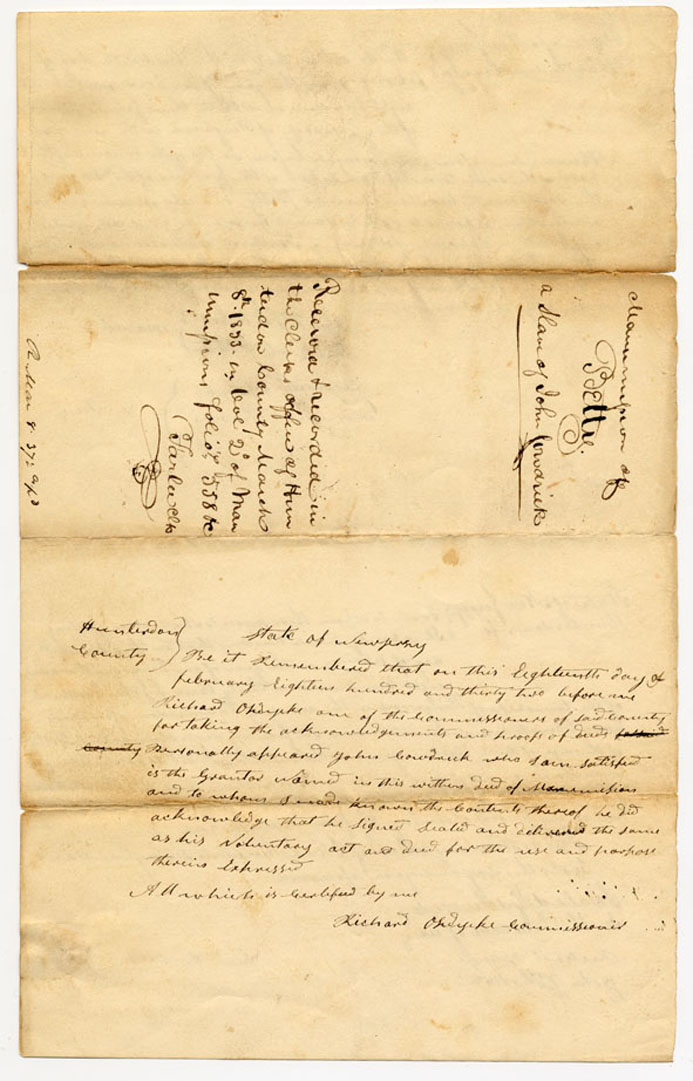 Manumission of
Bettie
a Slave of John Cowdrick
Received & recorded in
the Clerks office of Hun
terdon County March
8th 1833 in Vol 2d of Man
umissions folio 358 &c
Clk
Hunterdon
County
State of New Jersey
Be it Remembered that on this Eighteenth day of
february Eighteen hundred and thirty two before me
Richard Opdycke one of the Commissioners of said County
for taking the acknowledgements and proofs of deeds
County Personally appeared John Cowdrick who I am satisfied
is the Grantor Named in this within deed of Manumission
and to whom I made known the Contents thereof he did
acknowledge that he signed sealed and delivered the same
as his Voluntary act and deed for the use and purpose
therein Expressed
All which is Certified by me
Richard Opdycke Commissioner